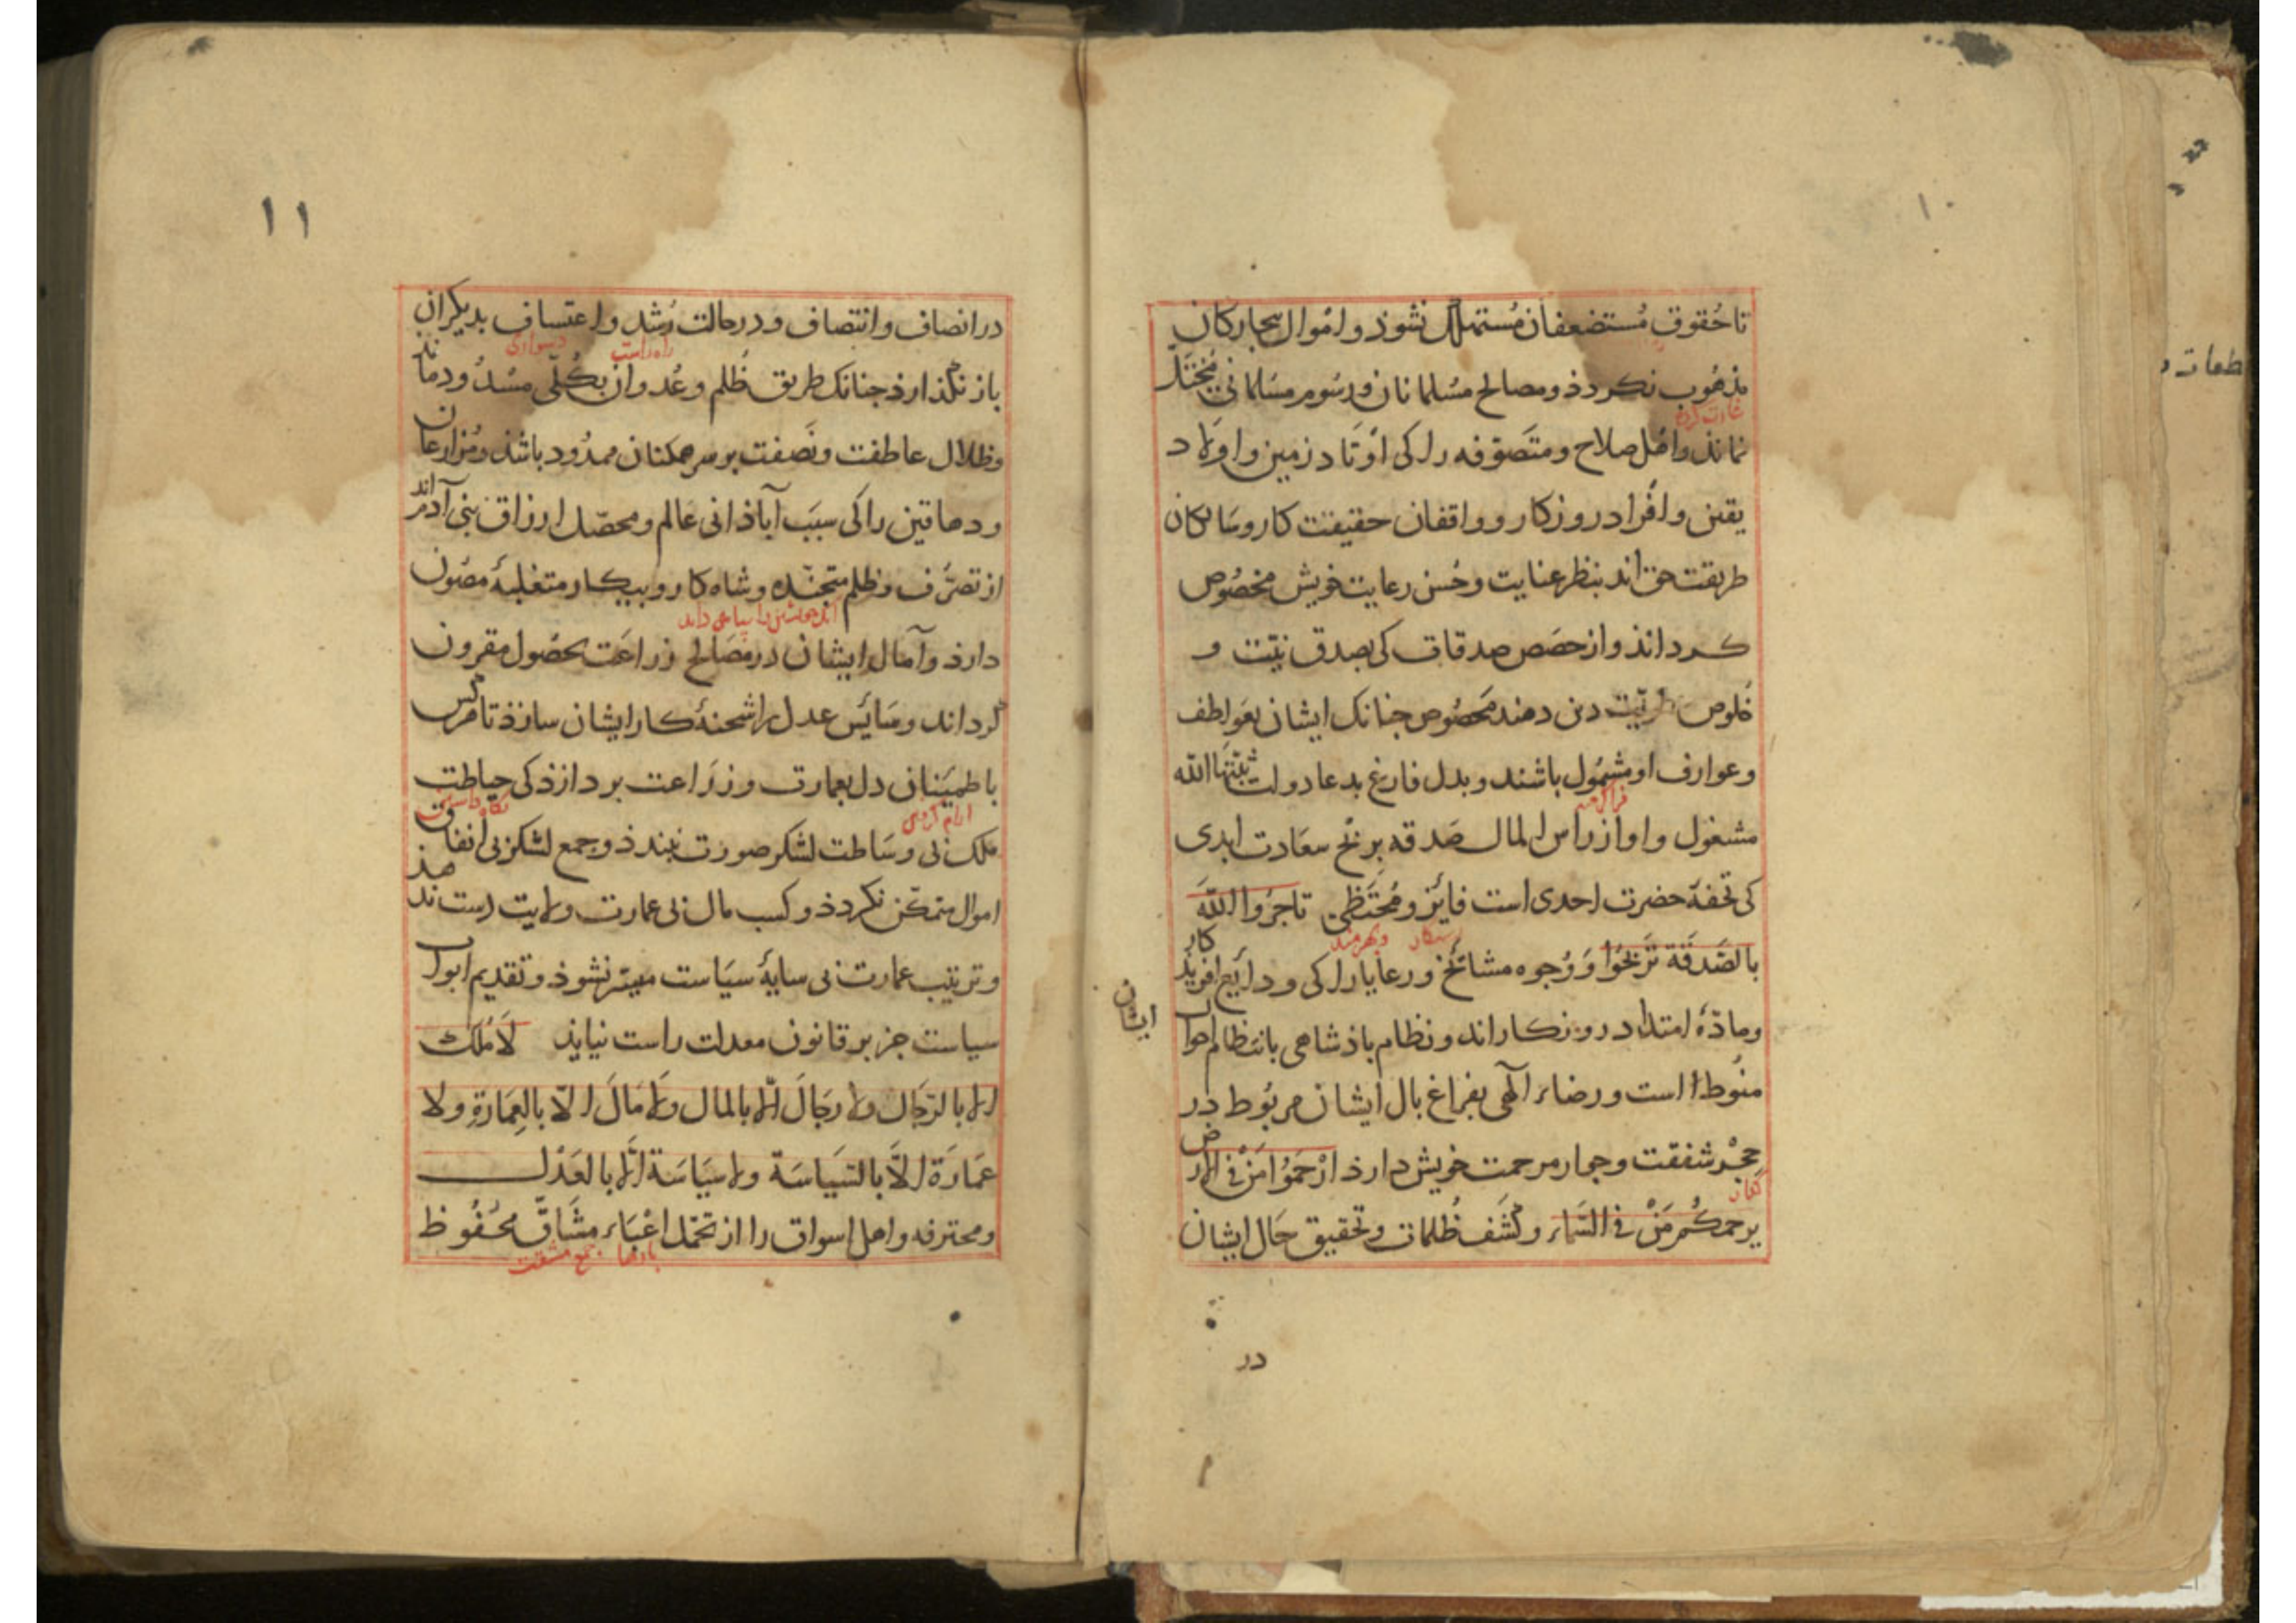 ١٠
تا حُقوقِ مُستضعفان مُستهلک نشوذ و اموال بیجارکان
مذهُوب نکردذ و مصالح مسُلمانان و رسُوم مسُلمانی مُختَلّ
غارت کرده
نماند و اهل صلاح و متَصَوّفه را کی اَوتَاد زمین و اولاد
یقین و اَفراد روزکار و واقفان حقیقت کار و سَالکان
طریقت حق اند بنظر عنایت و حُسن رعایت خویش مخصُوص
کرداند و از حصَص صدقات کی بصدق نیّت و
خلوص طویّت دهند محصُوص جنانک ایشان بعَواطف
و عوارف او مشمُول باشند و بدل فارغ بدعا دولت ثبّتها الله
مشغول و او از راس المال صَدقه بربْح سعَادت ابدی
کی تحفۀ حضرت احدی است فایَز و مُحتَظی تاجرُوا اللّهَ
رستکار و بهرمند
بالصَّدَقَة تَربَحُوا وَ وُجوه مشایخ و رعایا را کی ودایَع افریذکار
و مادّهٔ امتداد روزکار اند و نظام باذشاهی بانتظام احوال
ایشان
منُوط است و رضاء الٓهی بفراغ بال ایشان مربُوط در
حِجْر شفقت و جوار مرحمت خویش دارذ ارْحَمُوا مَنْ فی الارض
کنار
یرحمکُم مَنْ فی السَّماء و کَشَف ظُلمات و تحقیق حَال ایشان
در
١١
در انصاف و انتصاف و در حالت رُشد و اعتساف بدیکران
راه راست دشواری
باز نکذارذ جنانک طریق ظُلم و عُدوان بکُلّی مسُدُود ماند
و ظلال عاطفت و نَصَفت بر سر همکنان ممدُود باشذ و مُزارعان
و دهاقین را کی سبَب آباذانی عالم و محصّل ارزاق بنی آدم اند
از تصرُّف و ظلم متجنّده و شاه کار و بیکار متغلبۀ مصُون
دارذ و آمال ایشان در مصَالح زراعَت بحصُول مقرون
کرداند و سَائس عدل را شحنۀ کار ایشان سازذ تا هرکس
باطمینَان دل بعمارت و زرَاعت بردازذ کی حیاطت
ارام کردن نکاه داشتن
ملک بی وسَاطت لشکر صورَت نبندذ و جمع لشکر بی انفاق
اموال متمکّن نکردذ و کسب مال بی عمارت ولایت دست ندهذ
و ترتیب عمارت بی سایۀ سیَاست میسّر نشوذ و تقدیم ابواب
سیاست جز بر قانون معدلت راست نیایذ لَا مُلکَ
الا بالرّجَال ولا رجَالَ الّا بالمال ولا مَالَ الّا بالعِمَارَةِ ولا
عمَارَة الاَّ بالسّیَاسَة ولا سیَاسَة الّا بالعَدْل
و محترفه و اهل اسواق را از تحمّل اعْبَاء مشَاقّ محفُوظ
بارها جمع مشقت